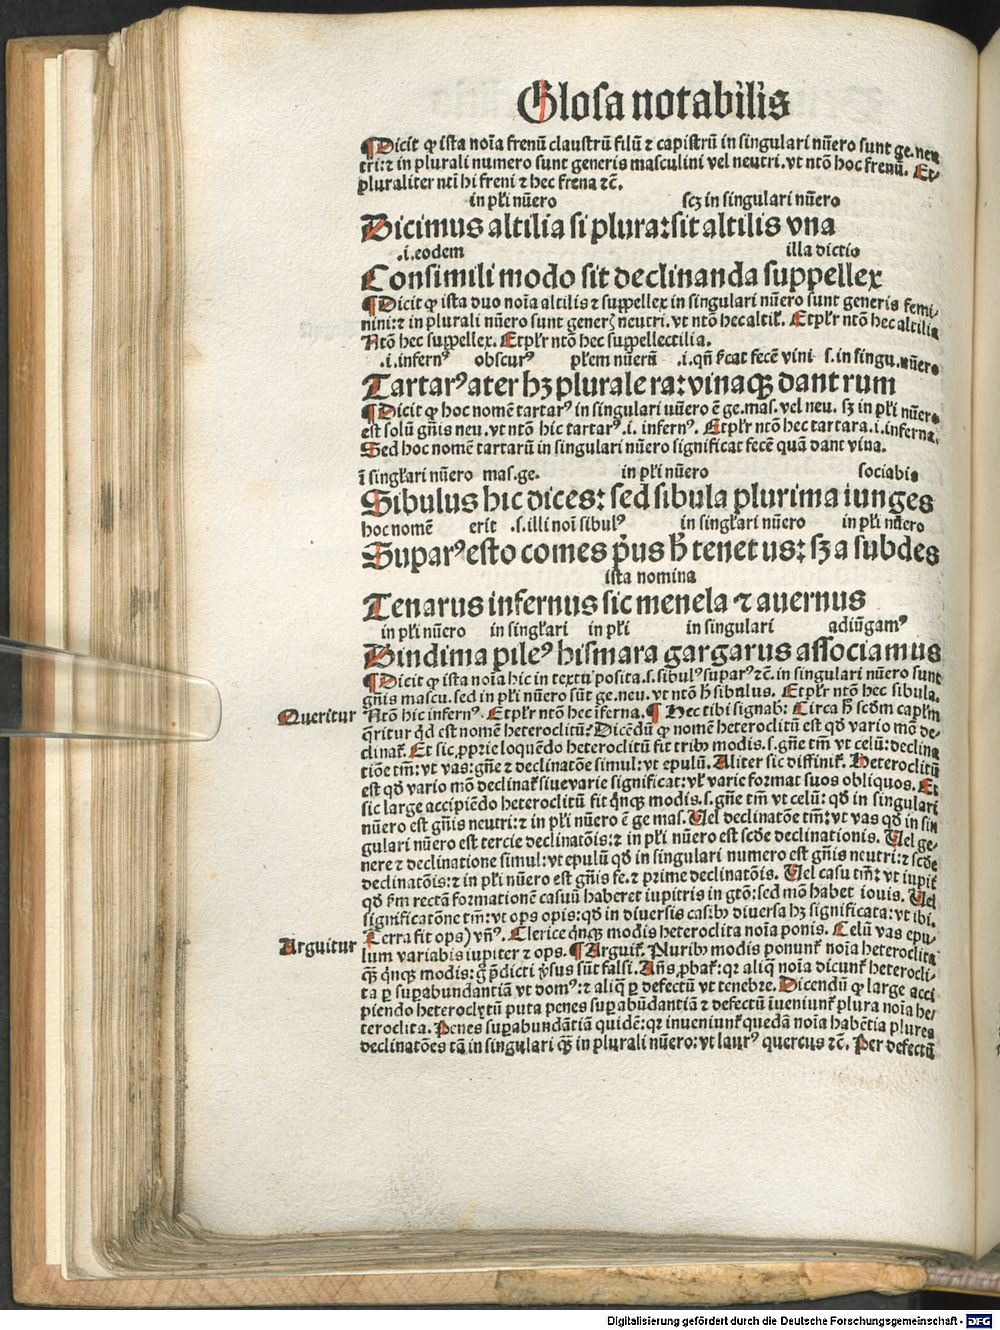 Glosa notabilis
¶Dicit ꝙ ista noīa frenū claustrū filū ⁊ capistrū in singulari nūero sunt ge. neu
tri: ⁊ in plurali numero sunt generis masculini vel neutri. vt ntō hoc frenū. Et
pluraliter ntī hi freni ⁊ hec frena ⁊c̄.
in pl̓i nūero scꝫ in singulari nūero
Dicimus altilia si plura: sit altilis vna
.i. eodem illa dictio
Consimili modo sit declinanda suppellex
¶Dicit ꝙ ista duo noīa altilis ⁊ suppellex in singulari nūero sunt generis femi-
nini: ⁊ in plurali nūero sunt generꝭ neutri. vt ntō hec altil̓. Et pl̓r ntō hec altilia
Ntō hec suppellex. Et pl̓r ntō hec suppellectilia.
.i. infernꝰ obscurꝰ pl̓em nūerū .i. qn̄ p̄cat fecē vini s. in singu. nūero
Tartarꝰ ater hꝫ plurale ra: vinaqꝫ dant rum
¶Dicit ꝙ hoc nomē tartarꝰ in singulari nūero ē ge. mas. vel neu. sꝫ in pl̓i nūero
est solū gn̄is neu. vt ntō hic tartarꝰ .i. infernꝰ. Et pl̓r ntō hec tartara .i. inferna.
Sed hoc nomē tartarū in singulari nūero significat fecē quā dant vina.
ī singl̓ari nūero mas. ge. in pl̓i nūero sociabis
Sibulus hic dices: sed sibula plurima iunges
hoc nomē erit .s. illi noī sibulꝰ in singl̓ari nūero in pl̓i nūero
Suparꝰ esto comes p̄us h̄ tenet us: sꝫ a subdes
ista nomina
Tenarus infernus sic menela ⁊ avernus
in pl̓i nūero in singl̓ari in pl̓i in singulari adiūgamꝰ
Dindima pileꝰ hismara gargarus associamus
¶Dicit ꝙ ista noīa hic in textu posita .s. sibulꝰ suparꝰ ⁊c̄. in singulari nūero sunt
gn̄is mascu. sed in pl̓i nūero sūt ge. neu. vt ntō h̄ sibulus. Et pl̓r ntō hec sibula.
Queritur
Ntō hic infernꝰ. Et pl̓r ntō hec īferna. ¶ Hec tibi signab: Circa h̄ scd̓m capl̓m
q̄ritur qd̓ est nomē heteroclitū? Dicēdū ꝙ nomē heteroclitū est qd̓ vario mō de-
clinat̓. Et sic ꝓprie loquēdo heteroclitū fit tribꝰ modis .s. gn̄e tm̄ vt celū: declina
tiōe tm̄: vt vas: gn̄e ⁊ declinatōe simul: vt epulū. Aliter sic diffinit̓. Heteroclitū
est qd̓ vario mō declinat̓ siue varie significat: vl̓ varie format suos obliquos. Et
sic large accipiēdo heteroclitū fit qn̄qꝫ modis .s. gn̄e tm̄ vt celū: qd̓ in singulari
nūero est gn̄is neutri: ⁊ in pl̓i nūero ē ge mas. Uel declinatōe tm̄: vt vas qd̓ in sin
gulari nūero est tercie declinatōis: ⁊ in pl̓i nūero est scd̓e declinationis. Uel ge-
nere ⁊ declinatione simul: vt epulū qd̓ in singulari numero est gn̄is neutri: ⁊ scd̓e
declinatōis: ⁊ in pl̓i nūero est gn̄is fe. ⁊ prime declinatōis. Uel casu tm̄: vt iupit̓
qd̓ ẜm rectā formationē casuū haberet iupitris in gtō: sed mō habet iouis. Uel
significatōne tm̄: vt ops opis: qd̓ in diuersis casibꝰ diuersa hꝫ significata: vt ibi.
Arguitur
Terra fit ops) vn̄ꝰ. Clerice qn̄qꝫ modis heteroclita noīa ponis. Celū vas epu-
lum variabis iupiter ⁊ ops. ¶Arguit̓. Pluribꝰ modis ponunt̓ noīa heteroclita
qꝫ̄ qn̄qꝫ modis: g̊ p̄dicti v̓sus sūt falsi. Ans̄ ꝓbat̓: qꝛ aliq̄ noīa dicunt̓ heterocli-
ta ꝑ suꝑabundantiā vt domꝰ: ⁊ aliq̄ ꝑ defectū vt tenebre. Dicendū ꝙ large acci
piendo heteroclytū puta penes suꝑabūdantiā ⁊ defectū īueniunt̓ plura noīa he-
teroclita. Penes suꝑabundātiā quidē: qꝛ inueniunt̓ quedā noīa habētia plures
declinatōes tā in singulari qꝫ̄ in plurali nūero: vt laurꝰ quercus ⁊c̄. Per defectū
Digitalisierung gefördert durch die Deutsche Forschungsgemeinschaft - DFG